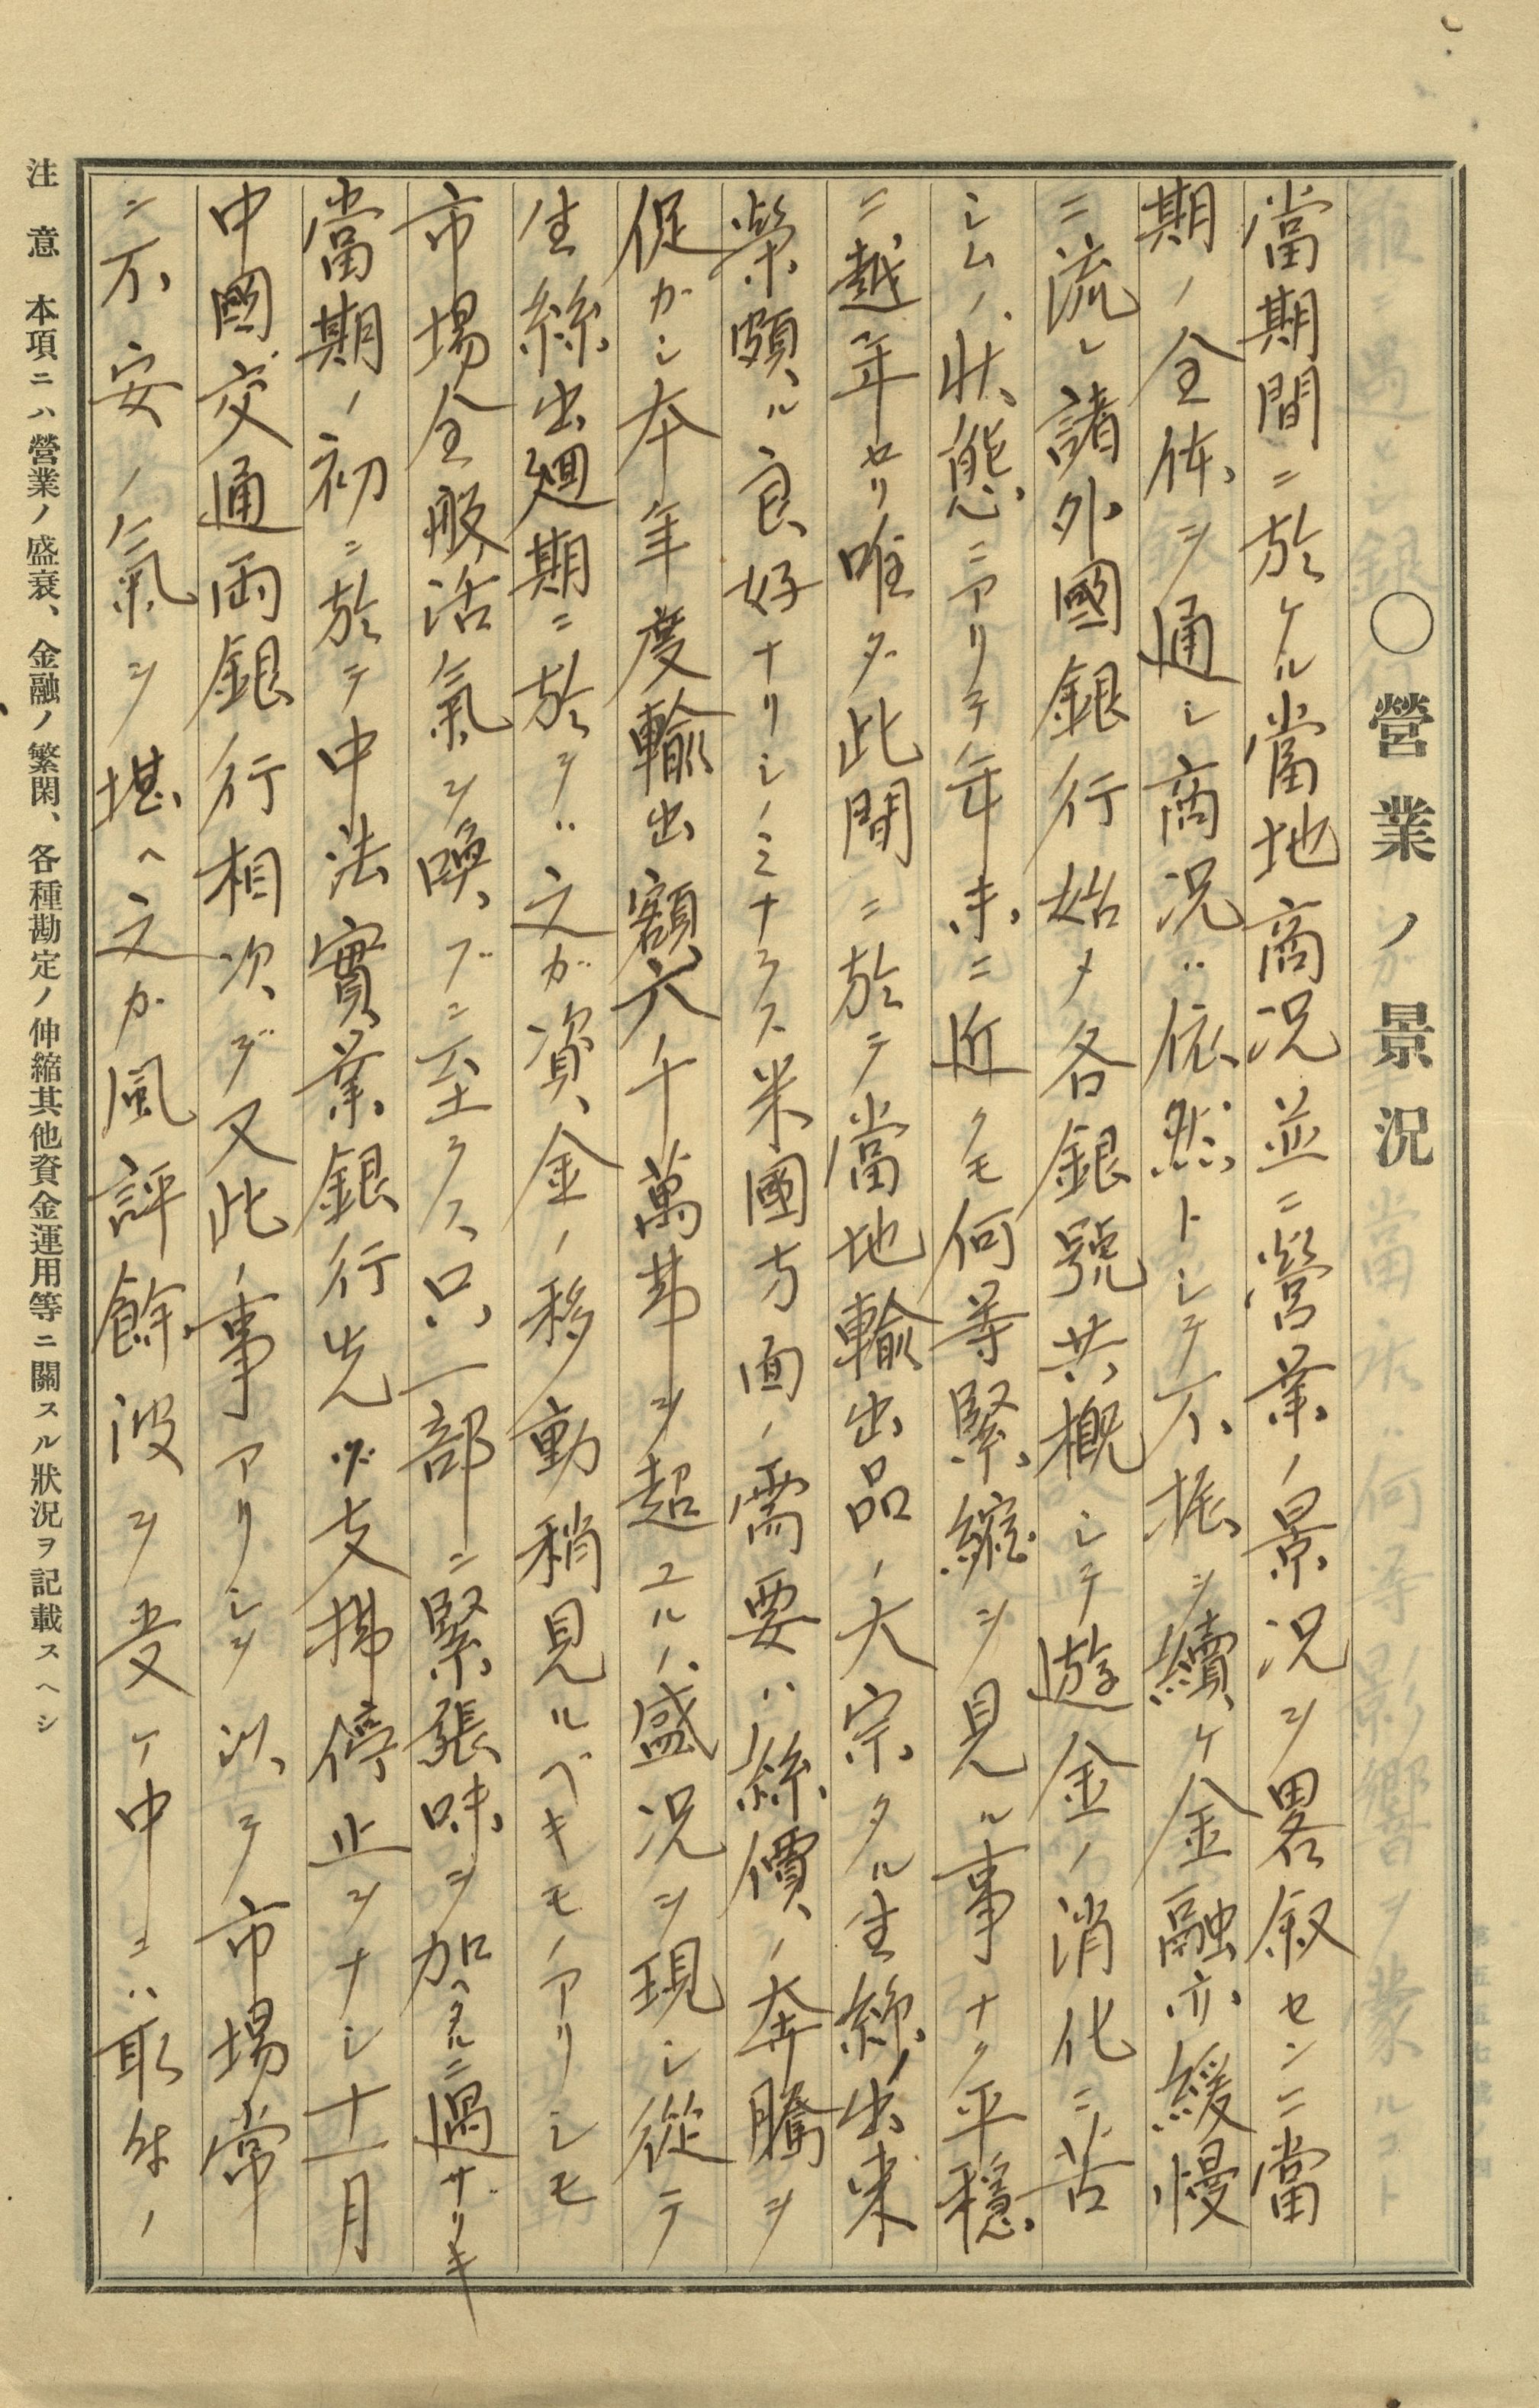 〇營業ノ景況
當期間ニ於ケル當地商况並ニ營業ノ景况ヲ畧叙センニ當
期ノ全体ヲ通シ商况ハ依然トシテ不振ヲ續ケ金融亦緩慢
ニ流レ諸外國銀行始メ各銀號共概シテ遊金ノ消化ニ苦
シムノ状態ニアリテ年末ニ近クモ何等緊縮ヲ見ル事ナク平穏
ニ越年セリ唯ダ此間ニ於テ當地輸出品ノ大宗タル生絲ノ出来
榮頗ル良好ナリシノミナラス米國方面ノ需要ハ絲價ノ奔騰ヲ
促がシ本年度輸出額六千萬弗ヲ超ユルノ盛况ヲ現シ從テ
生絲出廻期ニ於テハ之ガ資金ノ移動稍見ルベキモノアリシモ
市場全般活氣ヲ喚ブニ至ラス只一部ニ緊張味ヲ加ヘタルニ過サリキ
當期ノ初ニ於テ中法實業銀行先ヅ支拂停止ヲナシ十一月
中國交通両銀行相次デ又此ノ事アリシヲ以テ市場常
ニ不安ノ氣ヲ堪ヘ之カ風評餘波ヲ受ケ中ニハ取付ノ
注意 本項ニハ營業ノ盛衰、金融ノ繁閑、各種勘定ノ伸縮其他資金運用等ニ關スル狀況ヲ記載スヘシ